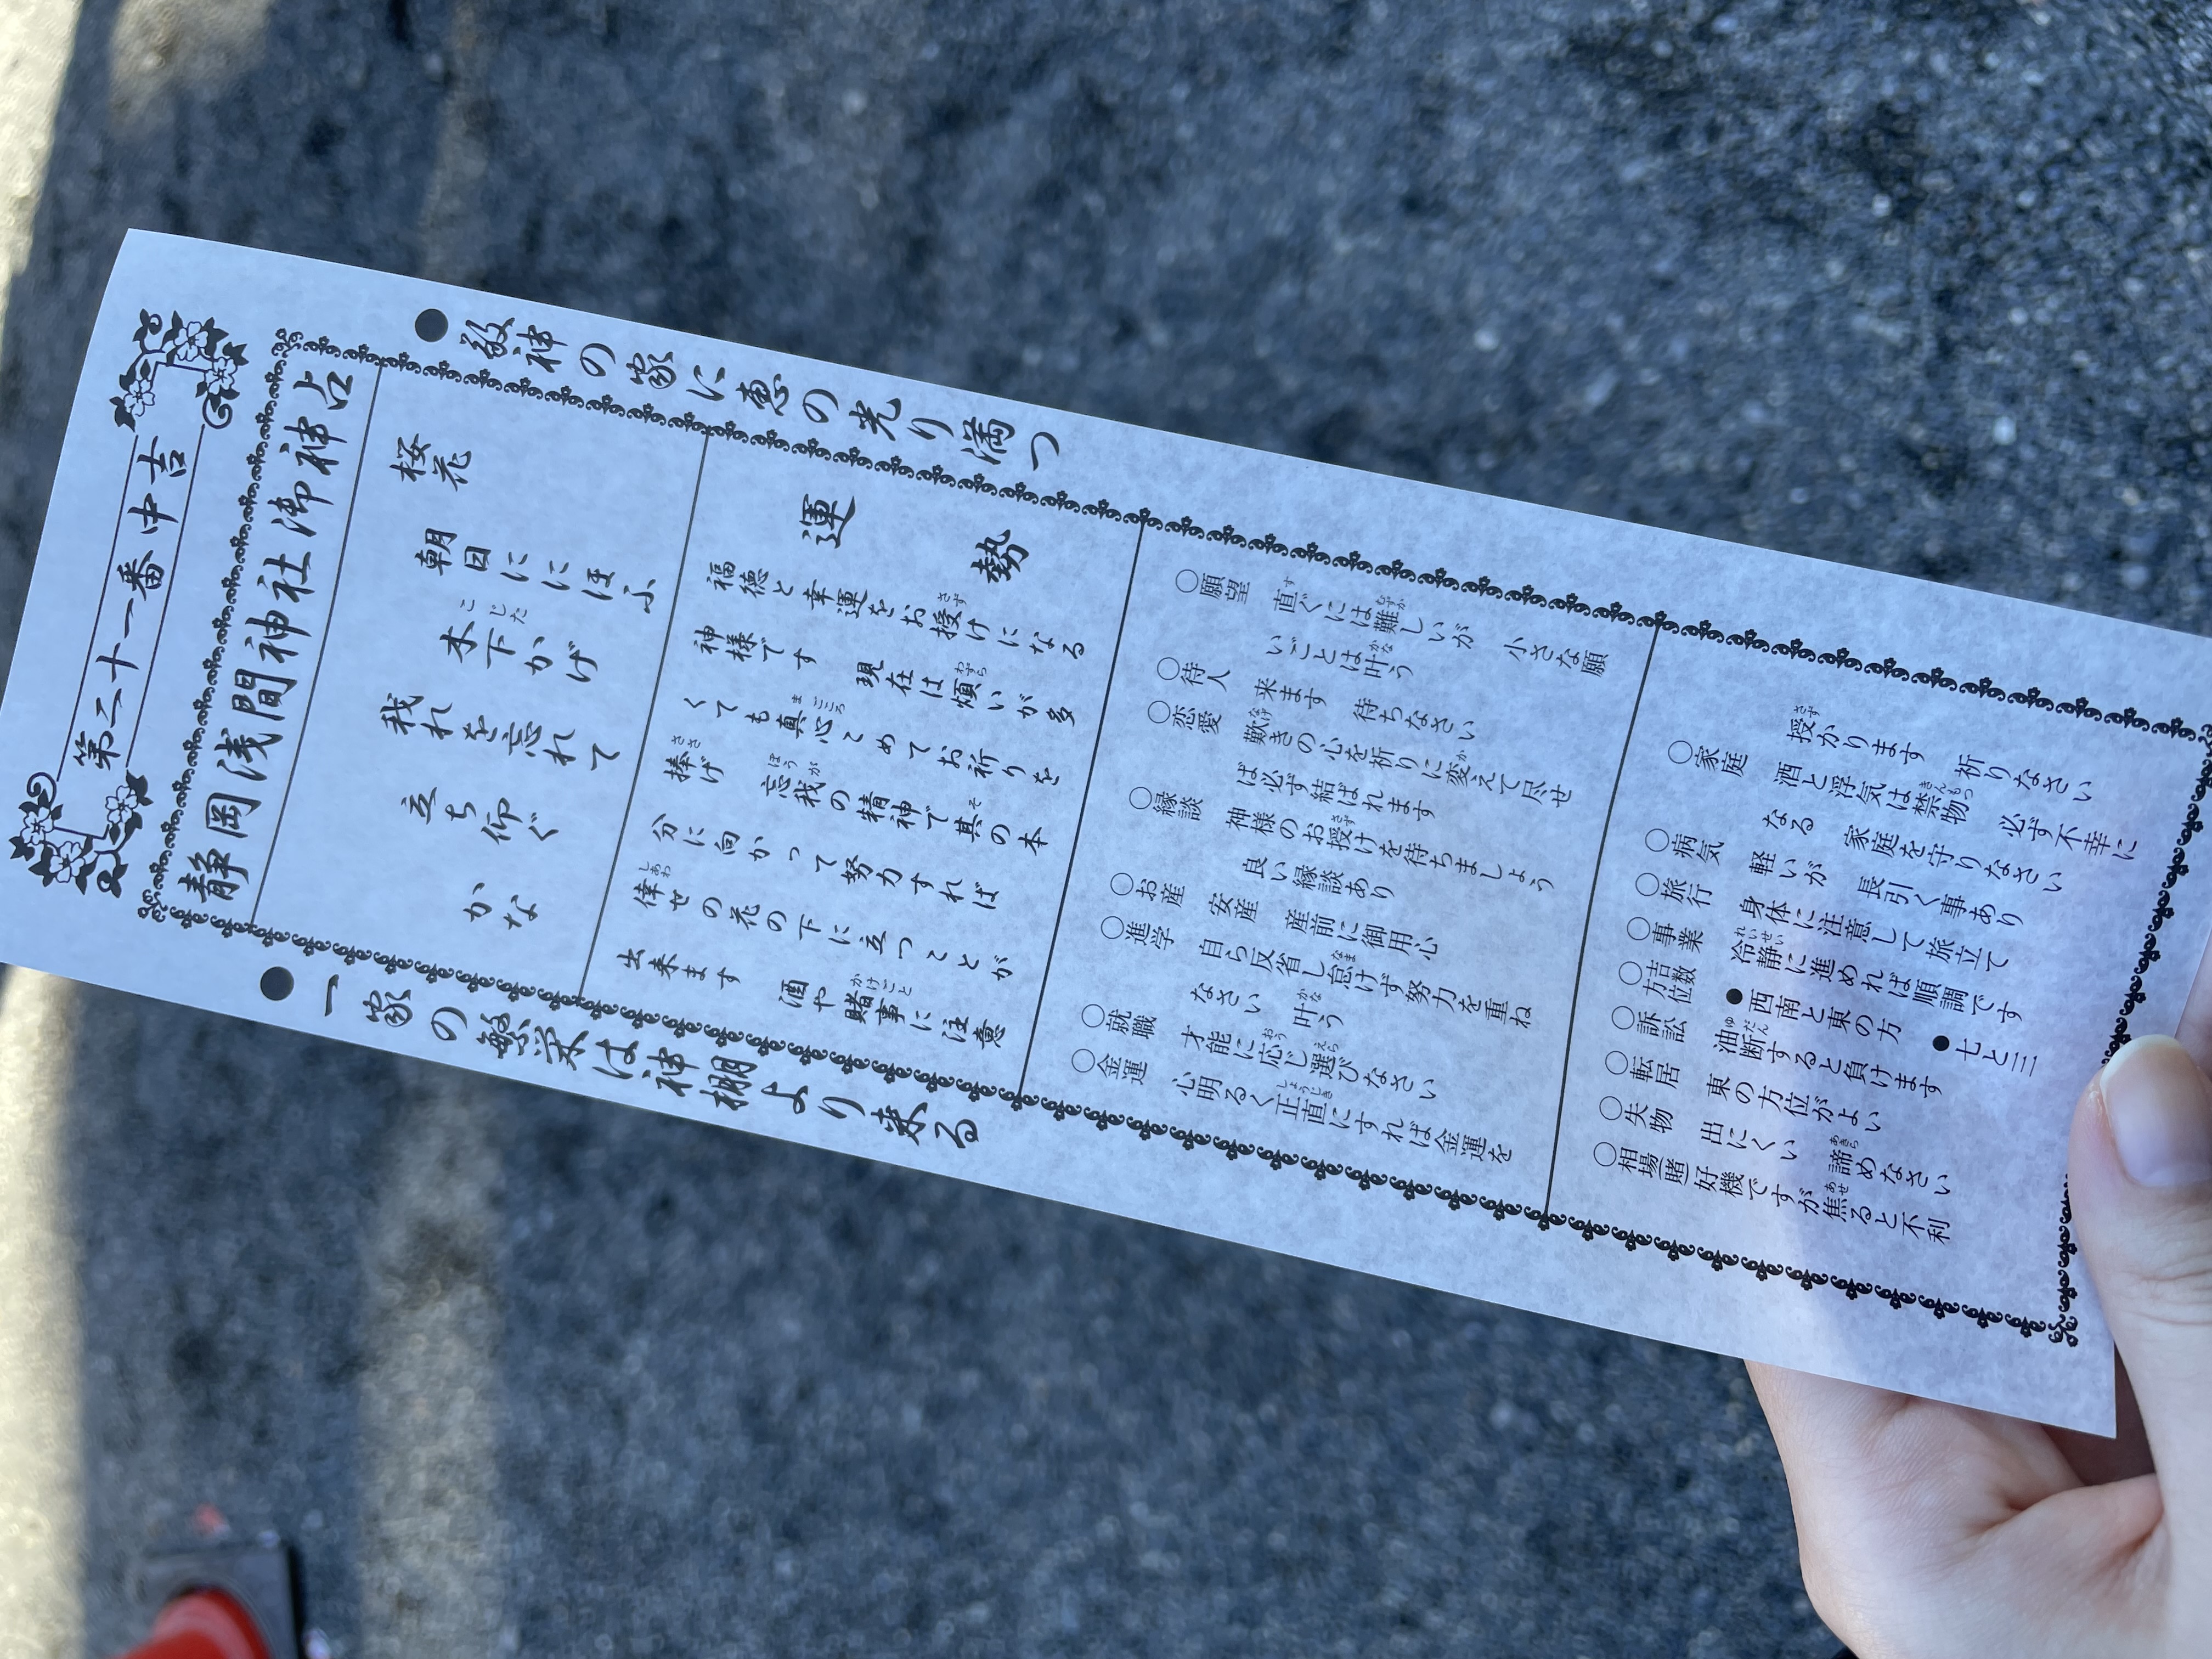 第二十一番中吉
静岡浅間神社御神占
●敬神の家に恵の光り満つ
桜花
朝日ににほふ
木下かげ
我れを忘れて
立ち仰ぐ
かな
運勢
福徳と幸運をお授けになる
神様です 現在は煩いが多
くても真心こめてお祈りを
捧げ 忘我の精神で其の本
分に向かって努力すれば
倖せの花の下に立つことが
出来ます 酒や賭事に注意
○願望 直ぐには難しいが 小さな願
いごとは叶う
○待人 来ます 待ちなさい
○恋愛 歎きの心を祈りに変えて尽せ
ば必ず結ばれます
○縁談 神様のお授けを待ちましょう
良い縁談あり
○お産 安産 産前に御用心
○進学 自ら反省し怠けず努力を重ね
なさい 叶う
○就職 才能に応じ選びなさい
○金運 心明るく正直にすれば金運を
授かります 祈りなさい
○家庭 酒と浮気は禁物 必ず不幸に
なる 家庭を守りなさい
○病気 軽いが 長引く事あり
○旅行 身体に注意して旅立て
○事業 冷静に進めれば順調です
○吉数方位 ●西南と東の方 ●七と三
○訴訟 油断すると負けます
○転居 東の方位がよい
○失物 出にくい 諦めなさい
○相場賭 好機ですが焦ると不利
●一家の繁栄は神棚より来る